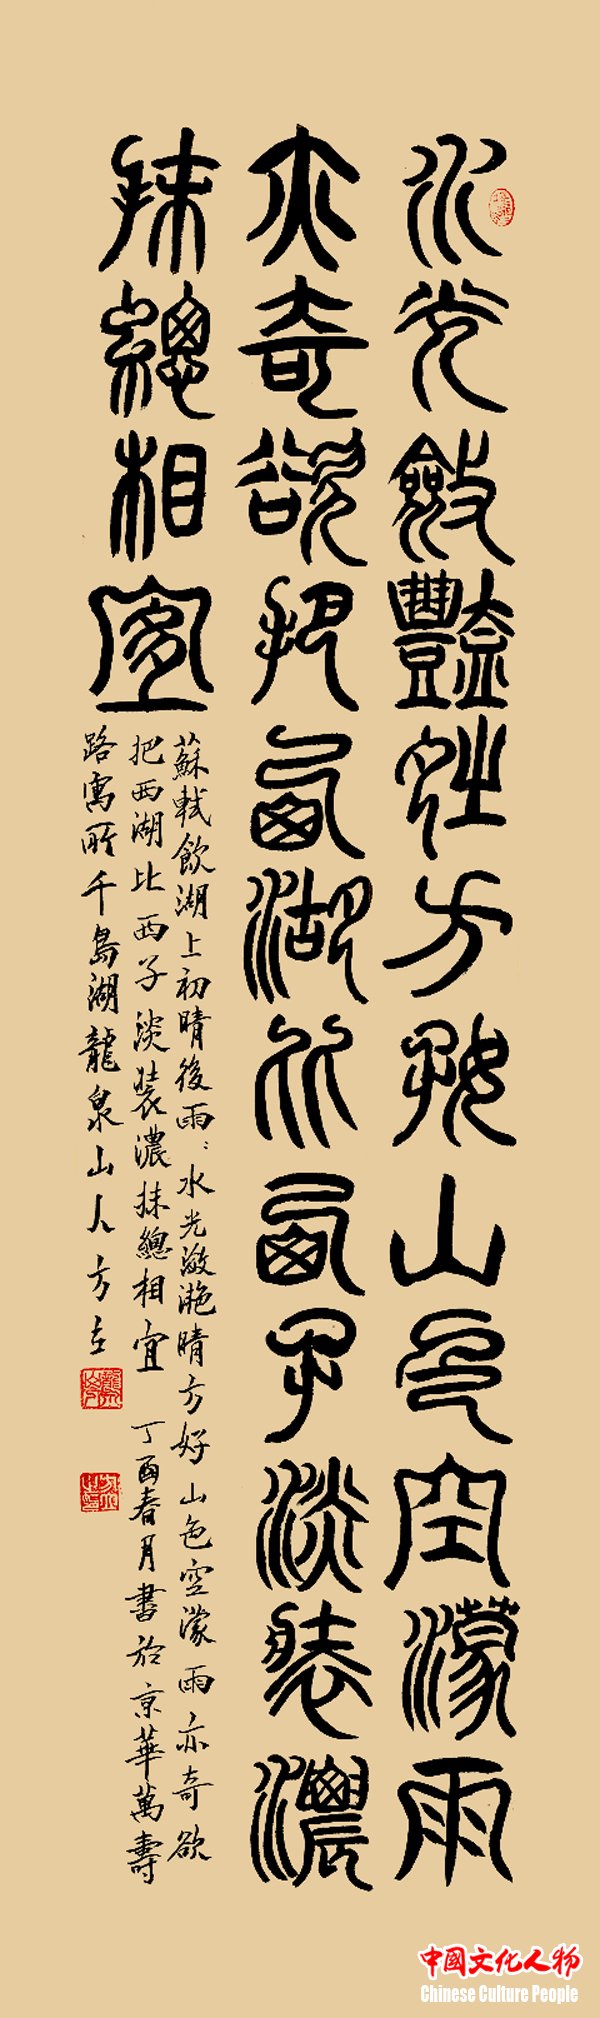 水光斂豔夝方好山色空濛雨
亦奇欲把西湖比西子淡裝濃
抹總相宜
蘇軾飲湖上初晴後雨：水光潋滟晴方好山色空濛雨亦奇欲
把西湖比西子淡裝濃抹總相宜 丁酉春月書於京華萬壽
路寓所千島湖龍泉山人方
中國文化人物
Chinese Culture People